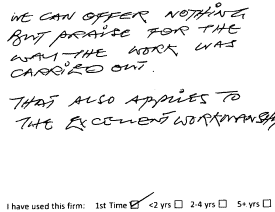 WE CAN OFFER NOTHING
BUT PRAISE FOR THE
WAY THE WORK WAS
CARRIED OUT.
THAT ALSO APPLIES TO
THE EXCELLENT WORKMANSH
I have used this firm: 1st Time ☑ <2 yrs ☐ 2-4 yrs ☐ 5+ yrs ☐